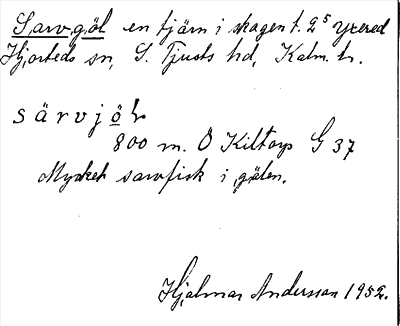 Sarvgöl en tjärn i skogen t. 2⁵ Yxered
Hjorteds sn, S. Tjusts hd, Kalm. l.
särvjöl
800 m. O Kiltorp G 37
Mycket sarvfisk i gölen.
Hjalmar Andersson 1952.